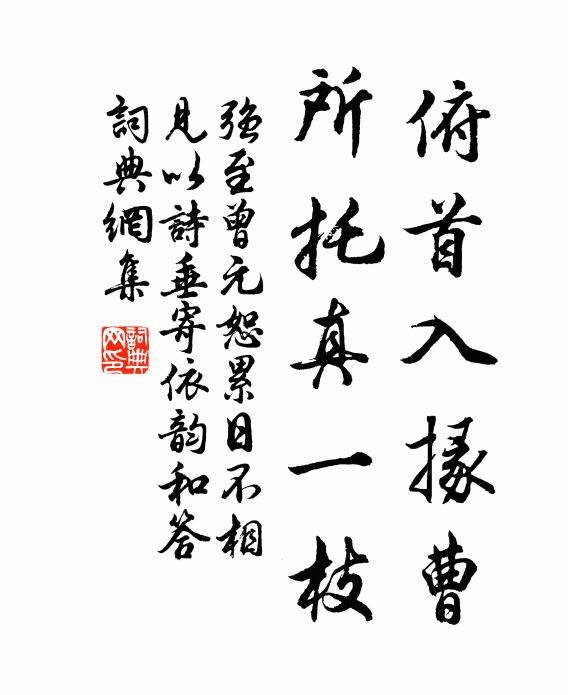 俯首入掾曹
所托真一枝
強至曾元恕累日不相
見以詩垂寄依韵和答
詞典網集
詞典
网印